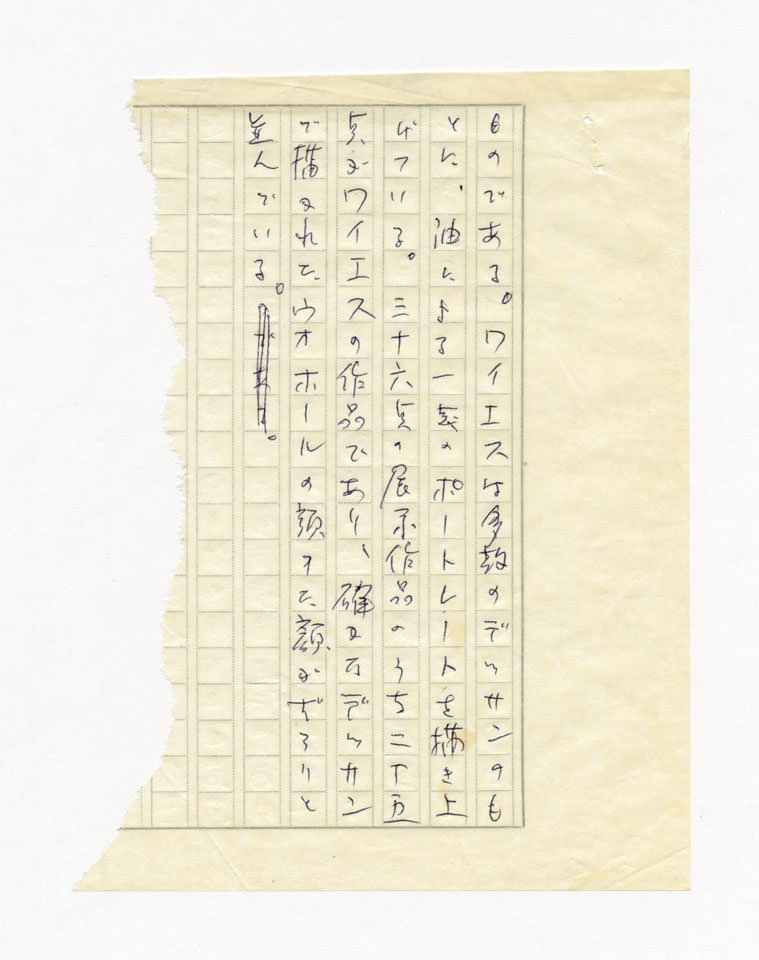 ものである。ワイエスは多数のデッサンのも
とに、油による一點のポートレートを描き上
げている。三十六点の展示作品のうち二十五
点がワイエスの作品であり、確かなデッサン
で描かれた、ウオホールの顔また顔がずらりと
並んでいる。